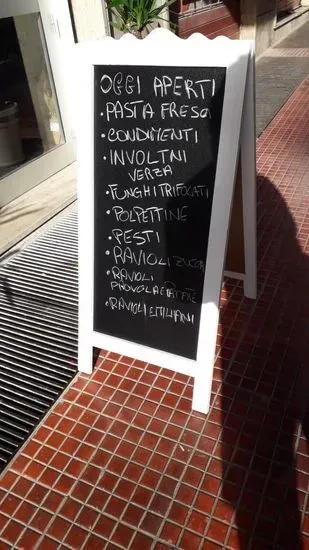 OGGI APERTI
• PASTA FRESCA
• CONDIMENTI
• INVOLTNI
VERZA
• FUNGHI TRIFOLATI
• POLPETTINE
• PESTI
• RAVIOLI ZUCCA
• RAVIOLI
PROVOLA E
• RAVIOLI